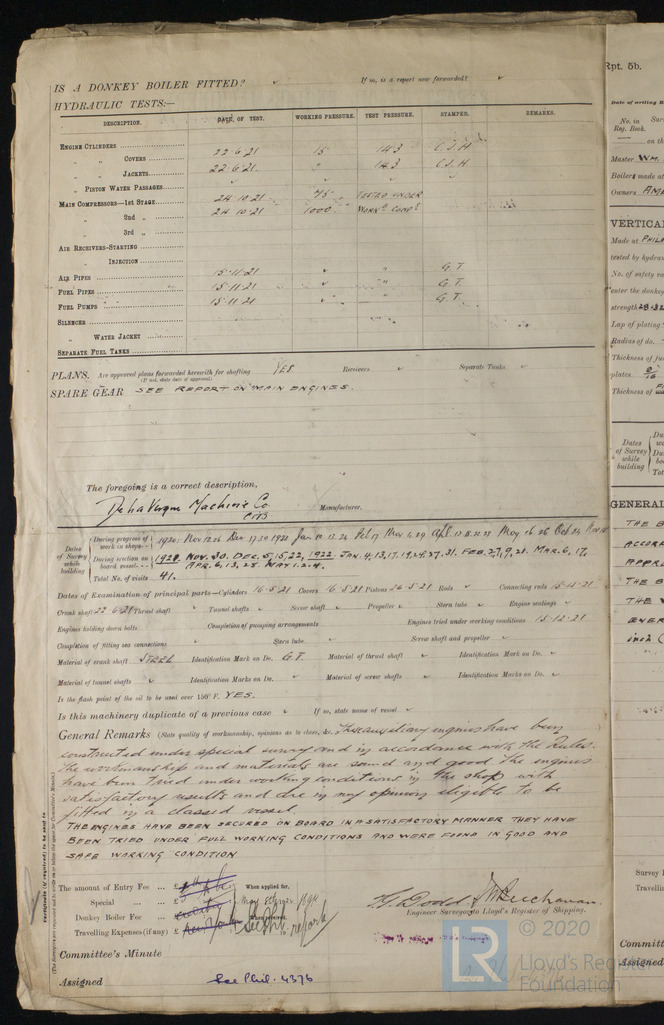 IS A DONKEY BOILER FITTED? ✓ If so, is a report now forwarded? ✓
HYDRAULIC TESTS:—
DESCRIPTION. DATE OF TEST. WORKING PRESSURE. TEST PRESSURE. STAMPED. REMARKS.
ENGINE CYLINDERS 22.6.21 15 143 C.J.H
" " COVERS 22.6.21 " 143 C.J.H.
" " JACKETS
" PISTON WATER PASSAGES
MAIN COMPRESSORS—1ST STAGE 24.10.21 75 TESTED UNDER
" 2nd " 24.10.21 1000 WORKG CONDS
" 3rd "
AIR RECEIVERS—STARTING
" INJECTION
AIR PIPES 15.11.21 ✓ " G.T.
FUEL PIPES 15.11.21 ✓ " G.T.
FUEL PUMPS 15.11.21 ✓ " G.T.
SILENCER
" WATER JACKET
SEPARATE FUEL TANKS
PLANS. Are approved plans forwarded herewith for shafting YES Receivers ✓ Separate Tanks ✓
(If not, state date of approval)
SPARE GEAR SEE REPORT ON MAIN ENGINES.
The foregoing is a correct description,
De La Vergne Machine Co Manufacturer.
Dates of Survey while building
During progress of work in shops - - 1920: Nov 12.26 Dec 17.30 1921 Jan
During erection on board vessel - - 1921. NOV. 30. DEC. 5, 15, 22, 1922 JAN. 4, 13, 17, 19, 24, 27, 31. FEB. 2, 7, 9, 21. MAR. 6, 17,
APR. 6, 13, 25. MAY 1. 2. 4.
Total No. of visits 41.
Dates of Examination of principal parts—Cylinders 16.5.21 Covers 16.5.21 Pistons 26.5.21 Rods ✓ Connecting rods 15.11.21
Crank shaft 22.6.21 Thrust shaft ✓ Tunnel shafts ✓ Screw shaft ✓ Propeller ✓ Stern tube ✓ Engine seatings ✓
Engines holding down bolts Completion of pumping arrangements Engines tried under working conditions 15.12.21
Completion of fitting sea connections ✓ Stern tube. ✓ Screw shaft and propeller ✓
Material of crank shaft STEEL Identification Mark on Do. G.T. Material of thrust shaft ✓ Identification Mark on Do. ✓
Material of tunnel shafts ✓ Identification Marks on Do. ✓ Material of screw shafts ✓ Identification Marks on Do. ✓
Is the flash point of the oil to be used over 150° F. YES.
Is this machinery duplicate of a previous case ✓ If so, state name of vessel ✓
General Remarks (State quality of workmanship, opinions as to class, &c. These auxiliary engines have been
constructed under special survey and in accordance with the Rules.
The workmanship and materials are sound and good. The engines
have been tried under working conditions in the shop with
satisfactory results and are in my opinion eligible to be
fitted in a classed vessel.
THE ENGINES HAVE BEEN SECURED ON BOARD IN A SATISFACTORY MANNER THEY HAVE
BEEN TRIED UNDER FULL WORKING CONDITIONS AND WERE FOUND IN GOOD AND
SAFE WORKING CONDITION
The amount of Entry Fee ... £ When applied for,
Special ... ... £
Donkey Boiler Fee ... £ When received,
Travelling Expenses (if any) £
Engineer Surveyor to Lloyd's Register of Shipping.
Committee's Minute
Assigned See Phil. 4376
© 2020
LR
Lloyd's Register
Foundation
Rpt. 5b.
Date of writing
No. in
Reg. Book.
on the
Master WM.
Boilers made at
Owners
VERTICA
Made at PHILA
tested by hydrau
No. of safety va
enter the donkey
strength 28-32
Lap of plating
Radius of do.
Thickness of
plates
Thickness of
Dates of Survey while building
GENERAL
THE B
ACCOR
APPR
THE B
THE
Survey
Travelli
Committ
Assigned